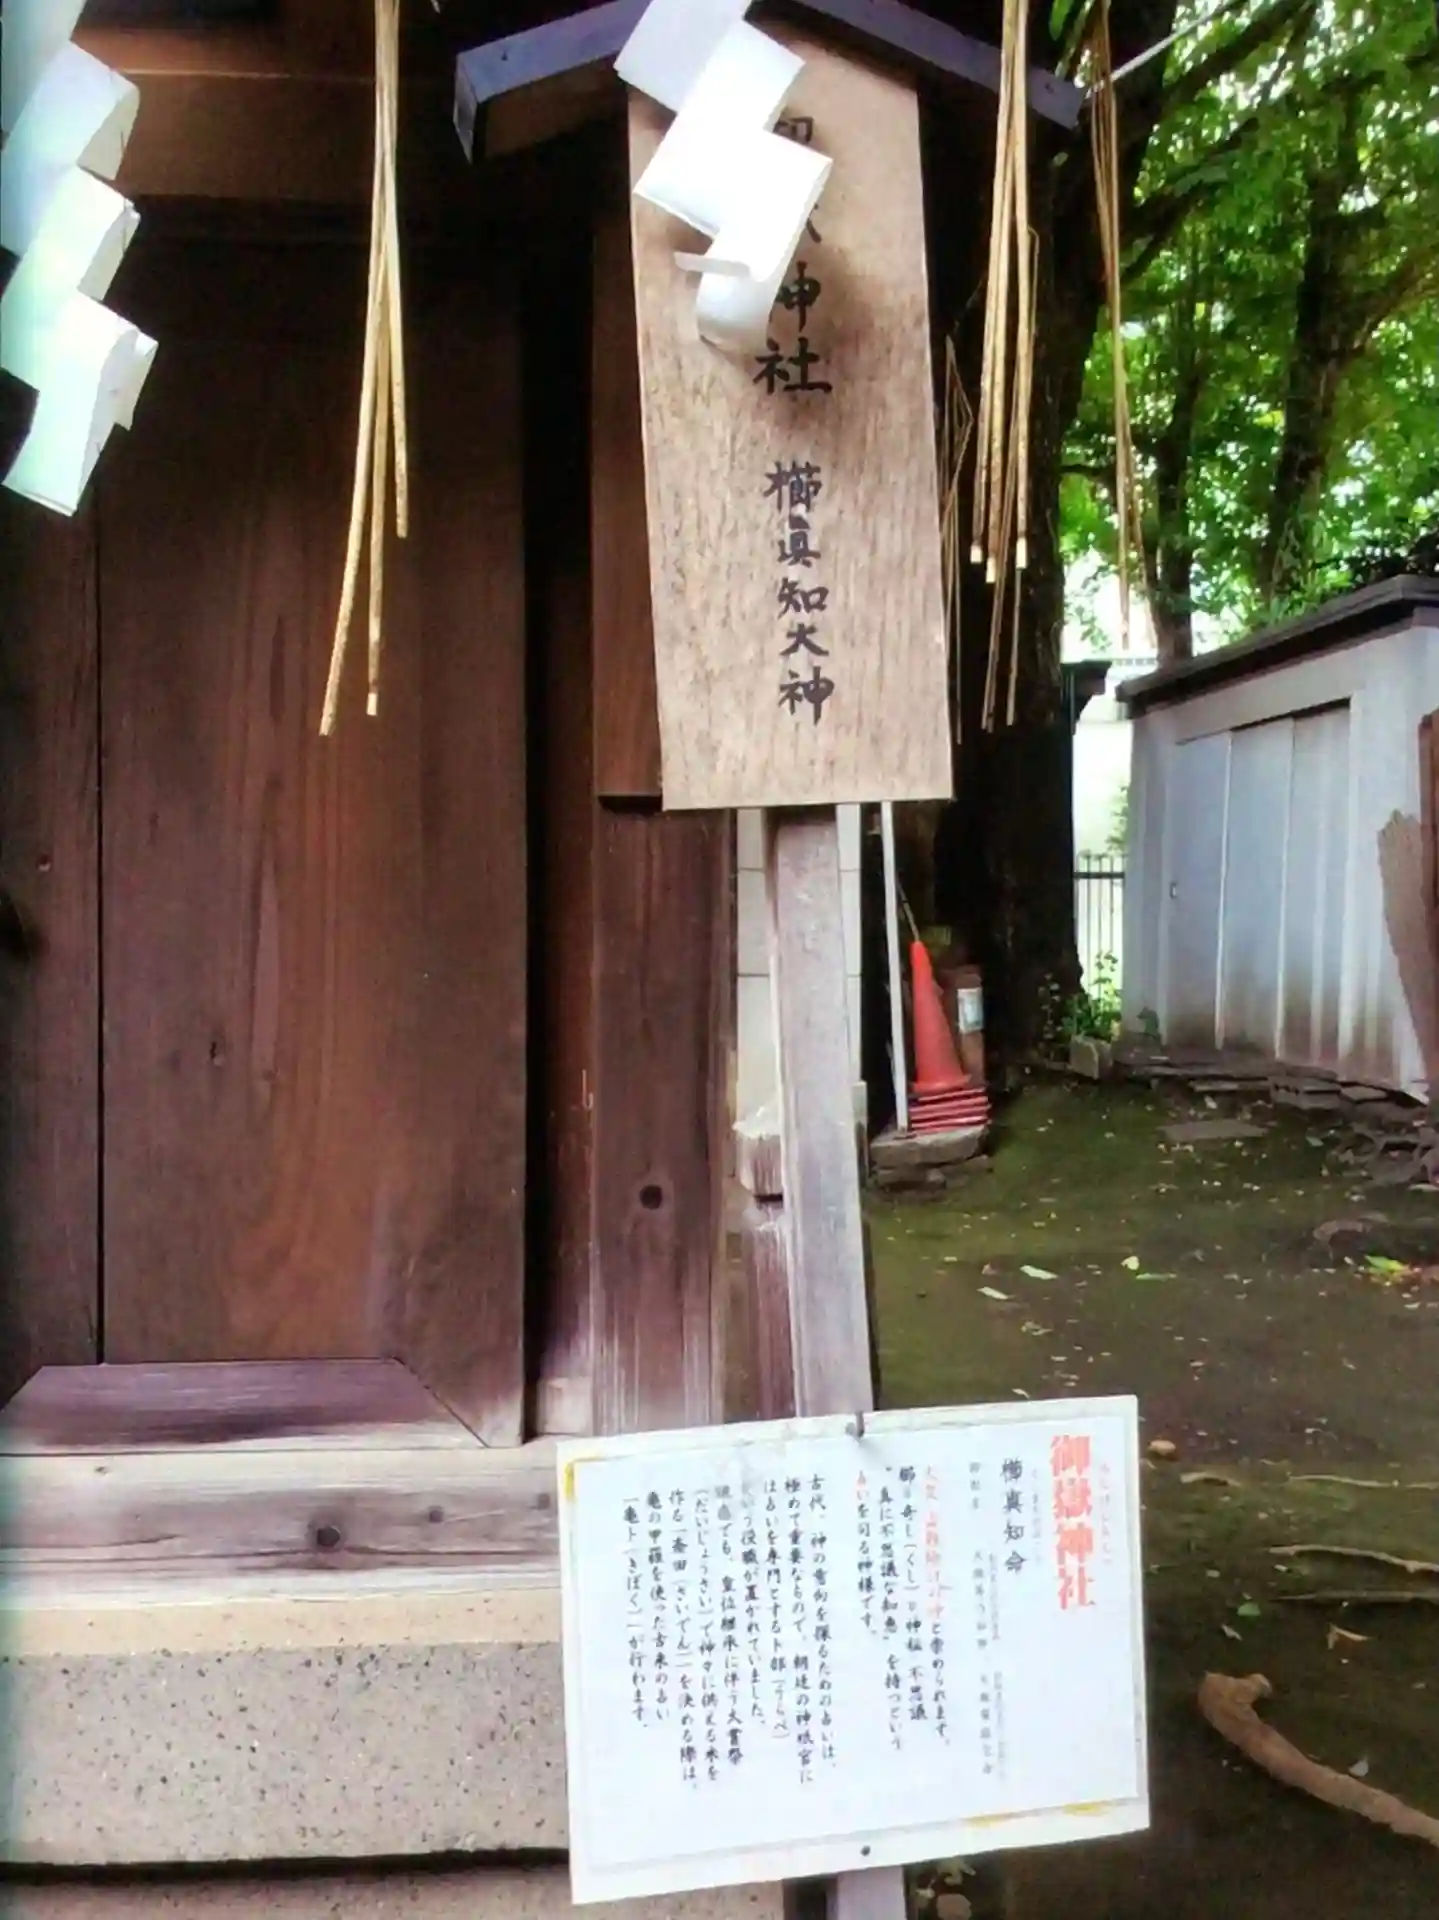 神社 櫛眞知大神
御嶽神社
櫛真知命
と崇められます。
櫛=奇し(くし)=神秘・不思議
"真に不思議な知恵"を持つという
占いを司る神様です。
古代、神の意向を探るための占いは、
極めて重要なもので、朝廷の神祇官に
は占いを専門とする卜部(うらべ)
という役職が置かれていました。
現在でも、皇位継承に伴う大嘗祭
(だいじょうさい)で神々に供える米を
作る「斎田(さいでん)」を決める際は、
亀の甲羅を使った古来の占い
「亀卜(きぼく)」が行われます。